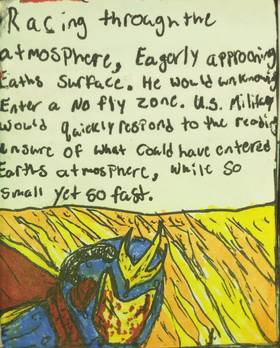 Racing through the
atmosphere, Eagerly approcing
Eaths Surface. He would unknowng
Enter a No fly zone. U.S. Military
would quickly respond to the reading
unsure of what could have entered
Earths atmosphere, while so
small yet so fast.